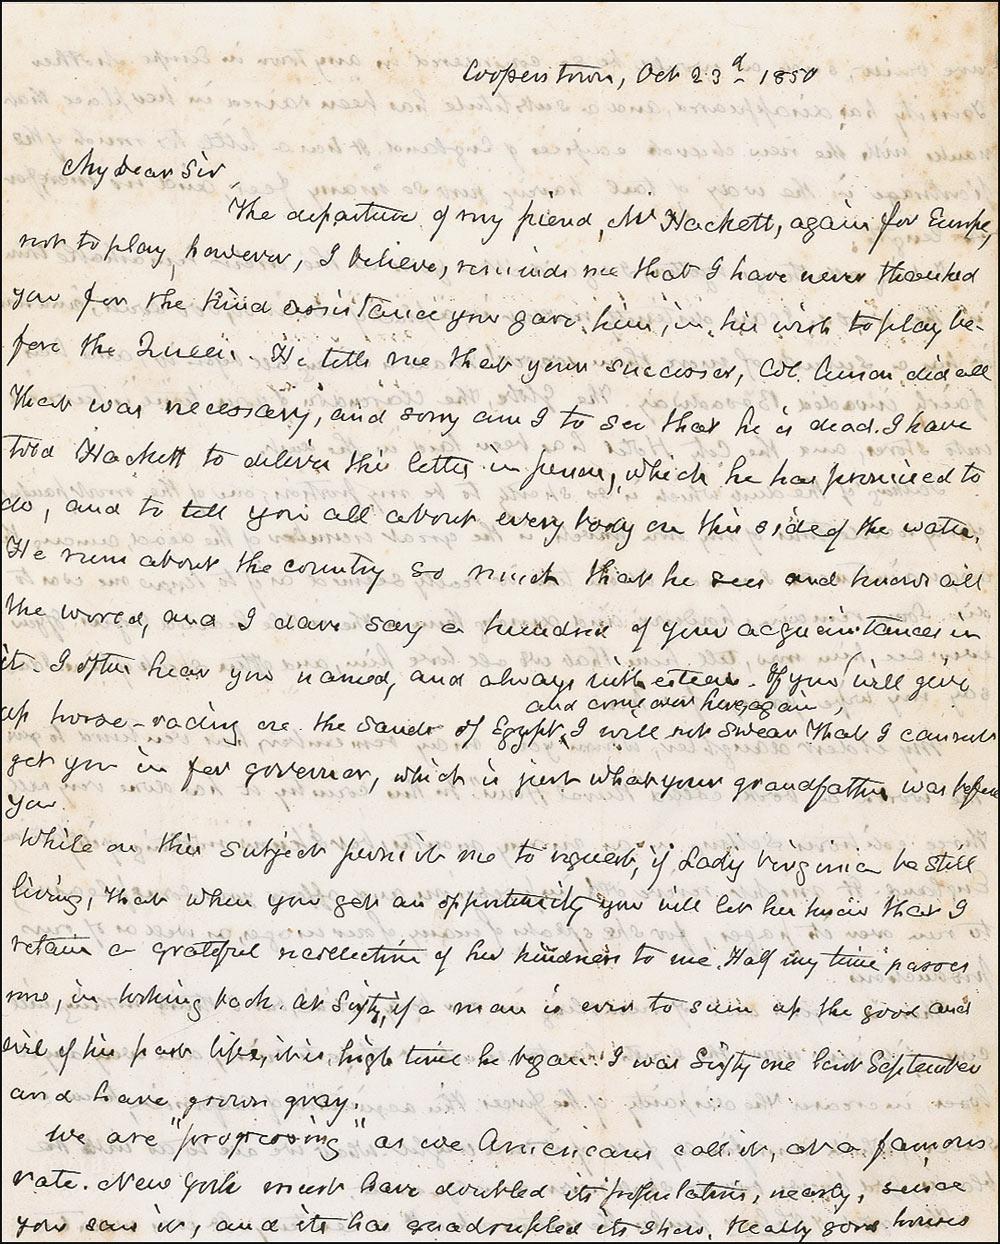 Cooperstown, Oct 23d 1850
My dear Sir,
The departure of my friend, Mr Hackett, again for Europe,
not to play, however, I believe, reminds me that I have never thanked
you for the kind assistance you gave him, in his wish to play be-
fore the Queen. He tells me that your successor, Col. did all
that was necessary, and sorry am I to see that he is dead. I have
told Hackett to deliver this letter in person, which he has promised to
do, and to tell you all about every body on this side of the water.
He runs about the country so much that he sees and knows all
the world, and I dare say a hundred of your acquaintances in
it. I often hear you named, and always with esteem. If you will give
and come over here again
up horse-racing on the sands of Egypt, I will not swear that I cannot
get you in for governor, which is just what your grandfather was before
you.
While on this subject permit me to request, if Lady Virginia be still
living, that when you get an opportunity you will let her know that I
retain a grateful recollection of her kindness to me. Half my time passes
now, in looking back. At Sixty, if a man is ever to sum up the good and
evil of his past life, it is high time he began. I was Sixty one last September
and have grown gray.
We are "progressing" as we Americans call it, at a famous
rate. New York must have doubled its population, nearly, since
you saw it, and its has quadrupled its show. Really good houses